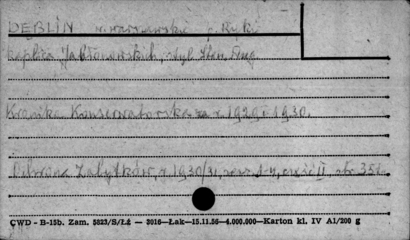 DĘBLIN w. warszawskie p. Ryki
kaplica Jabłonowskich, styl Stan. Aug.
Kronika Konserwatorska za r. 1929 i 1930.
Ochrona Zabytków, r. 1930/31, część II, str. 351.
CWD - B-15b. Zam. 5823/S/ŁŻ — 3016—Łak—15.11.56—4.000.000—Karton kl. IV A1/200 g